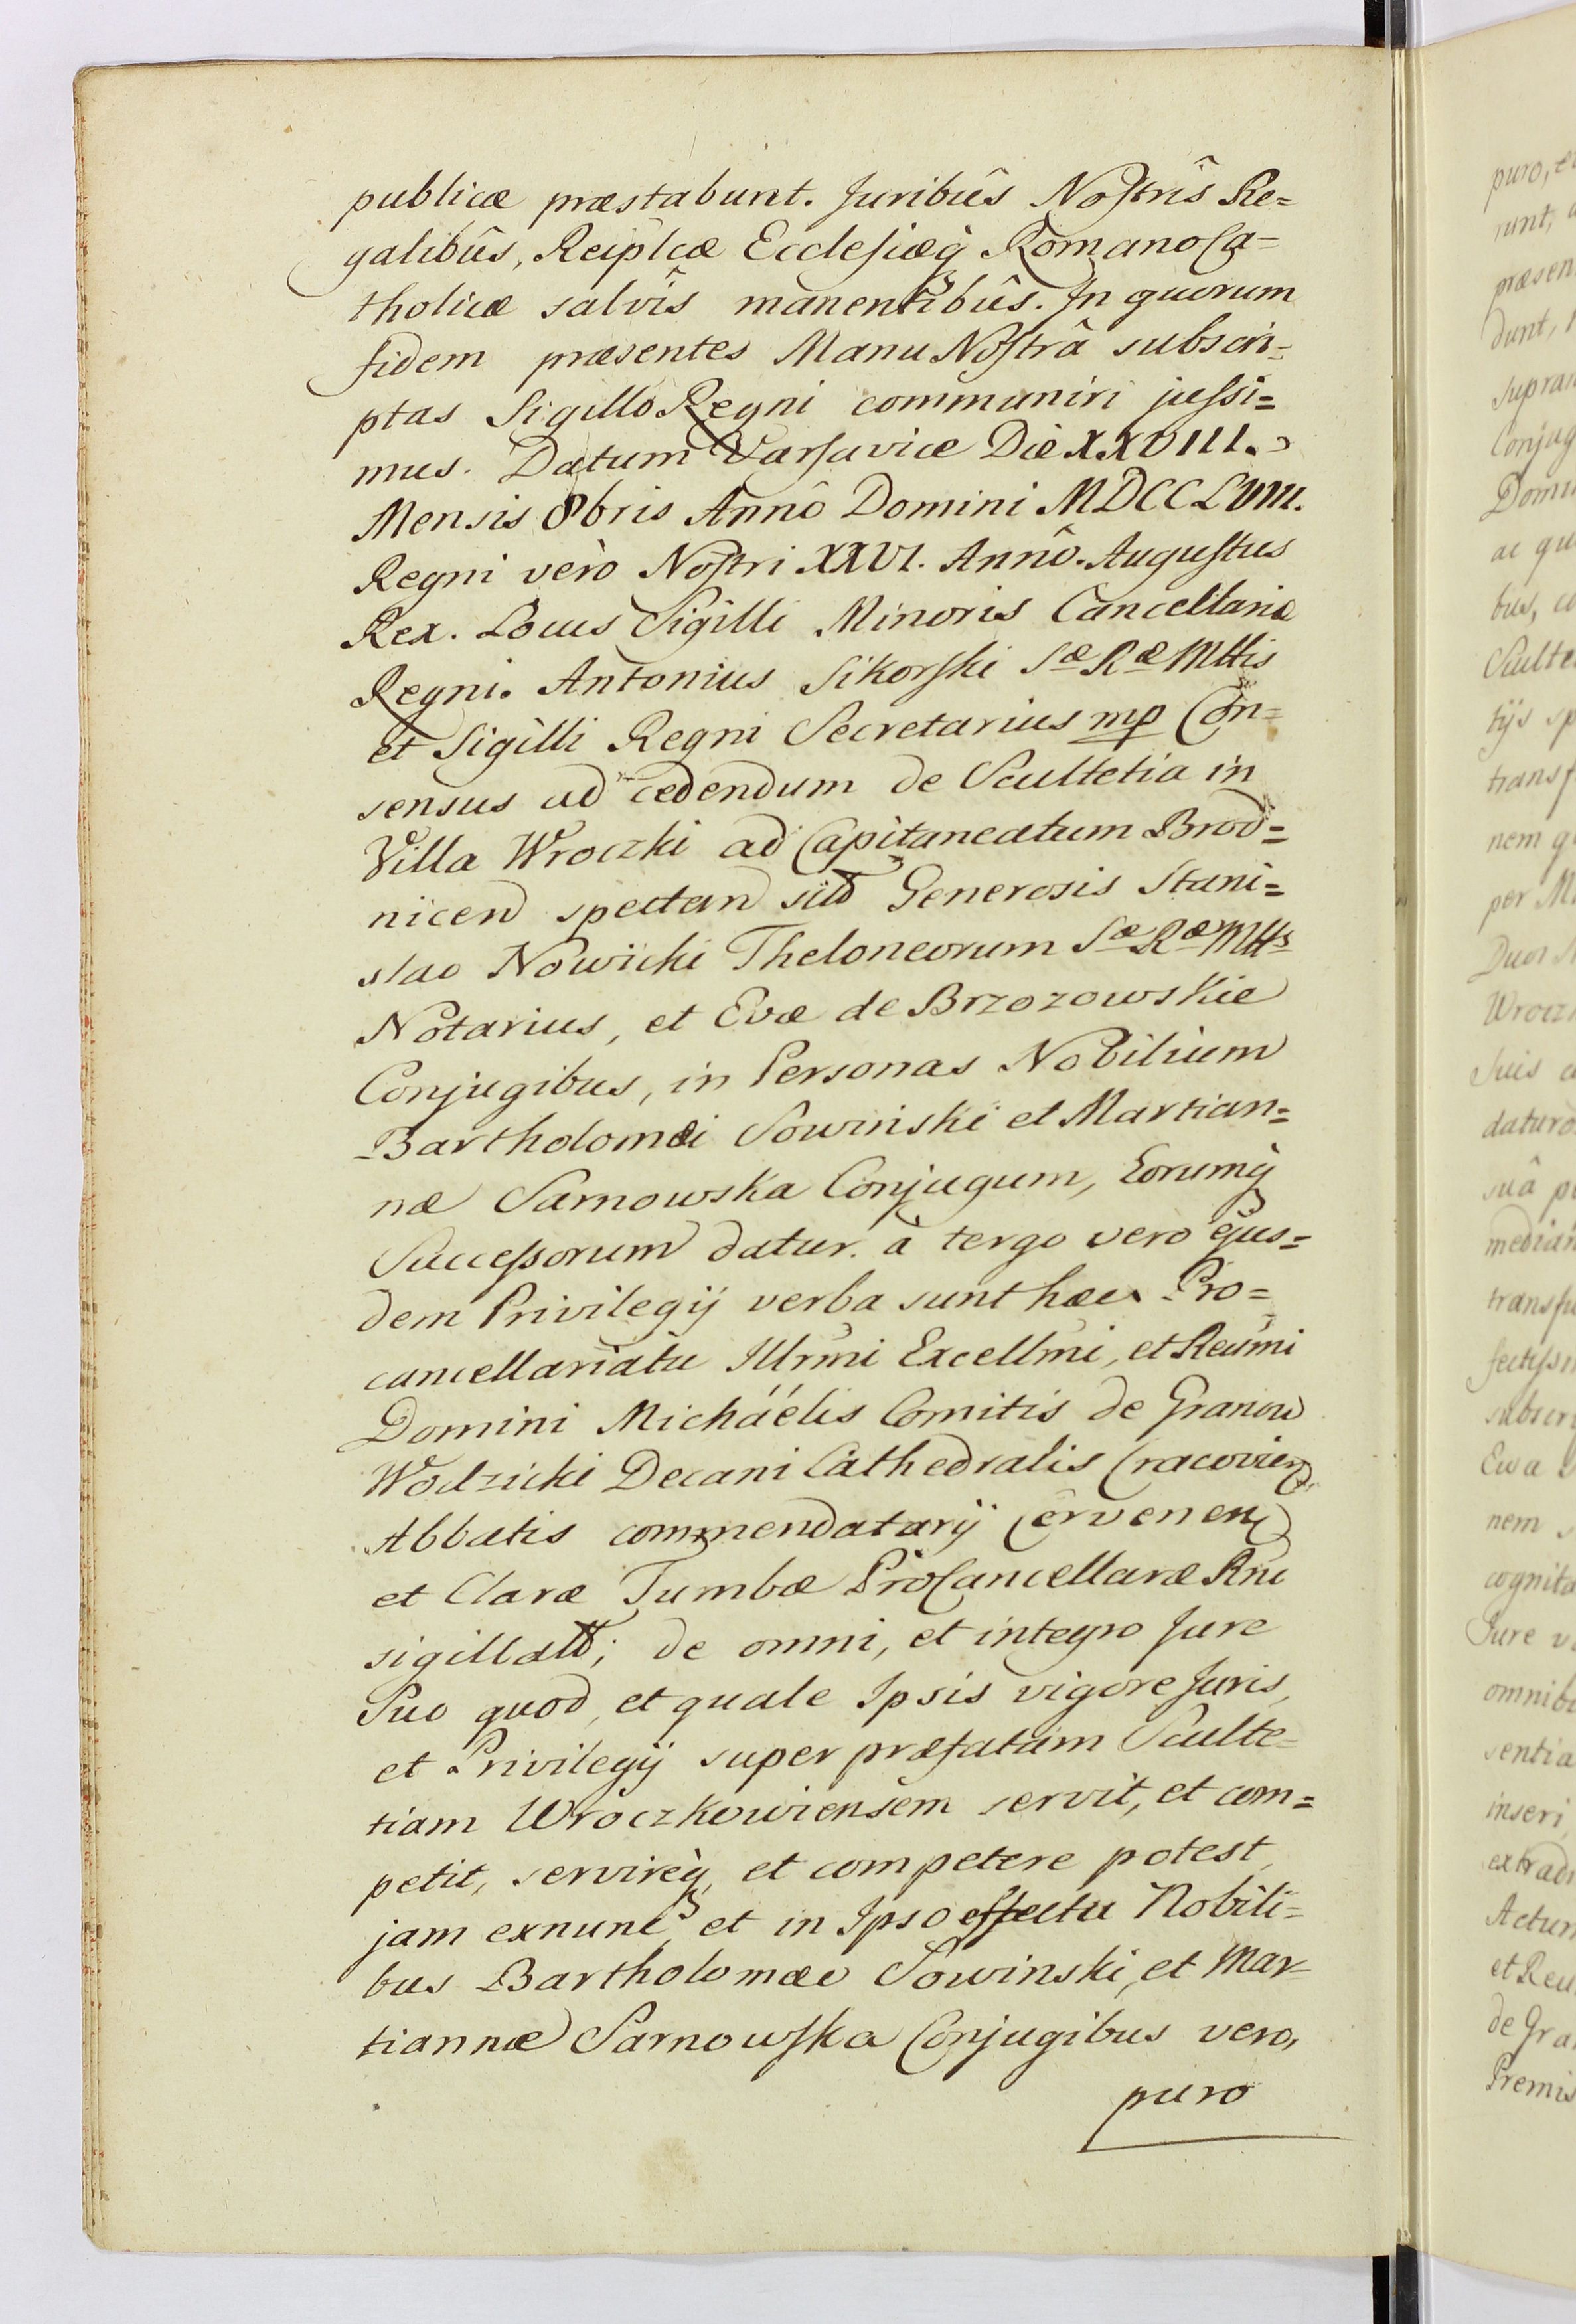 publicæ præstabunt. Juribûs Nostrîs Re=
galibûs, Reiplcæ Ecclesiæq̀ Romano Ca=
tholicæ salvîs manentibûs. In quorum
fidem præsentes Manu Nostrâ subscri=
ptas Sigillo Regni communiri jussi=
mus. Datum Varsaviæ Die XXVIII.
Mensis 8bris Annô Domini MDCCLVIII.
Regni verò Nostri XXVI. Annô. Augustus
Rex. Locus Sigilli Minoris Cancellariæ
Regni. Antonius Sikorski Sæ Ræ Mttis
et Sigilli Regni Secretarius mp Con=
sensus ad cedendum de Scultetia in
Villa Wroczki ad Capitaneatum Brod=
nicen spectan sitâ Generosis Stani=
slao Nowicki Theloneorum Sæ Ræ Mtts
Notarius, et Evæ de Brzozowskie
Conjugibus, in Personas Nobilium
Bartholomæi Sowinski et Martian=
næ Sarnowska Conjugum, Eorumq̀
Successorum datur. à tergo vero ejus=
dem Privilegij verba sunt hæc. Pro=
cancellariatu Illrmi Excellmi, et Reumi
Domini Michäélis Comitis de Granow
Wodzicki Decani Cathedralis Cracovien
Abbatis commendatarij Cervenen
et Claræ Tumbæ ProCancellaræ Rni
sigillatt; de omni, et integro Jure
Suo quod, et quale Ipsis vigore Juris,
et Privilegij super præfatam Sculte=
tiam Wroczkowiensem servit, et com=
petit, servireq̀, et competere potest,
jam exnunc, et in Ipso effectu Nobili=
bus Bartholomæo Sowinski, et Mar=
tiannæ Sarnowska Conjugibus vero,
puro